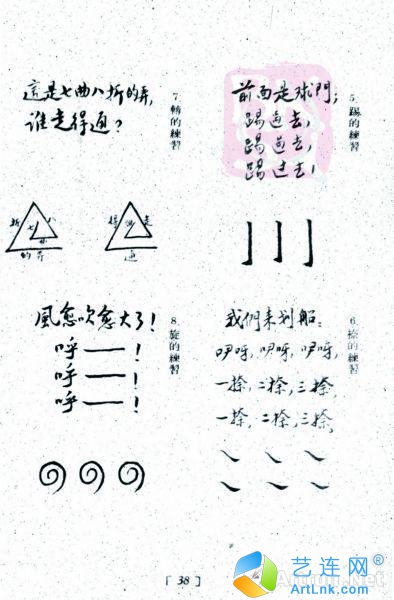 5. 踢的練習
前面是球門;
踢過去,
踢過去,
踢过去!
6. 捺的練習
我們来划船:
咿呀,咿呀,咿呀,
一捺,二捺,三捺,
一捺,二捺,三捺,
7. 轉的練習
這是七曲八折的弄,
谁走得通?
折 七 八
的弄
得 走
通
8. 旋的練習
風愈吹愈大了!
呼——!
呼——!
呼——!
[ 38 ]
艺连网®
ArtLnk.com